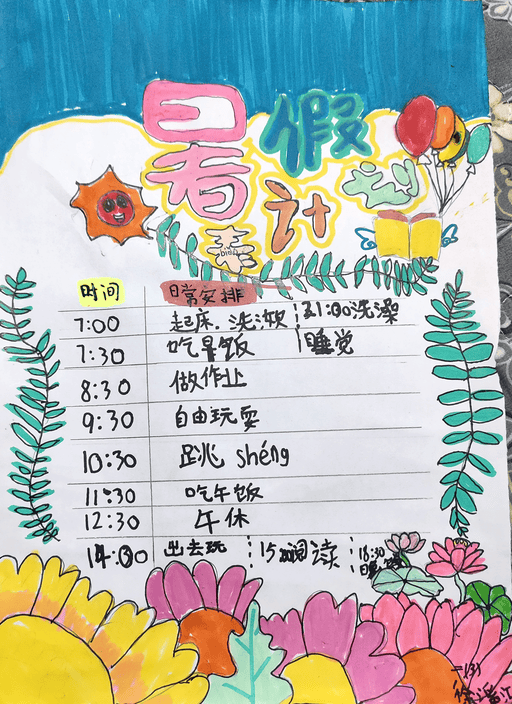 暑假
计
时间 日常安排
7:00 起床.洗漱 21:00洗澡
7:30 吃早饭 睡觉
8:30 做作业
9:30 自由玩耍
10:30 跳 shéng
11:30 吃午饭
12:30 午休
14:00 出去玩 阅读 18:30